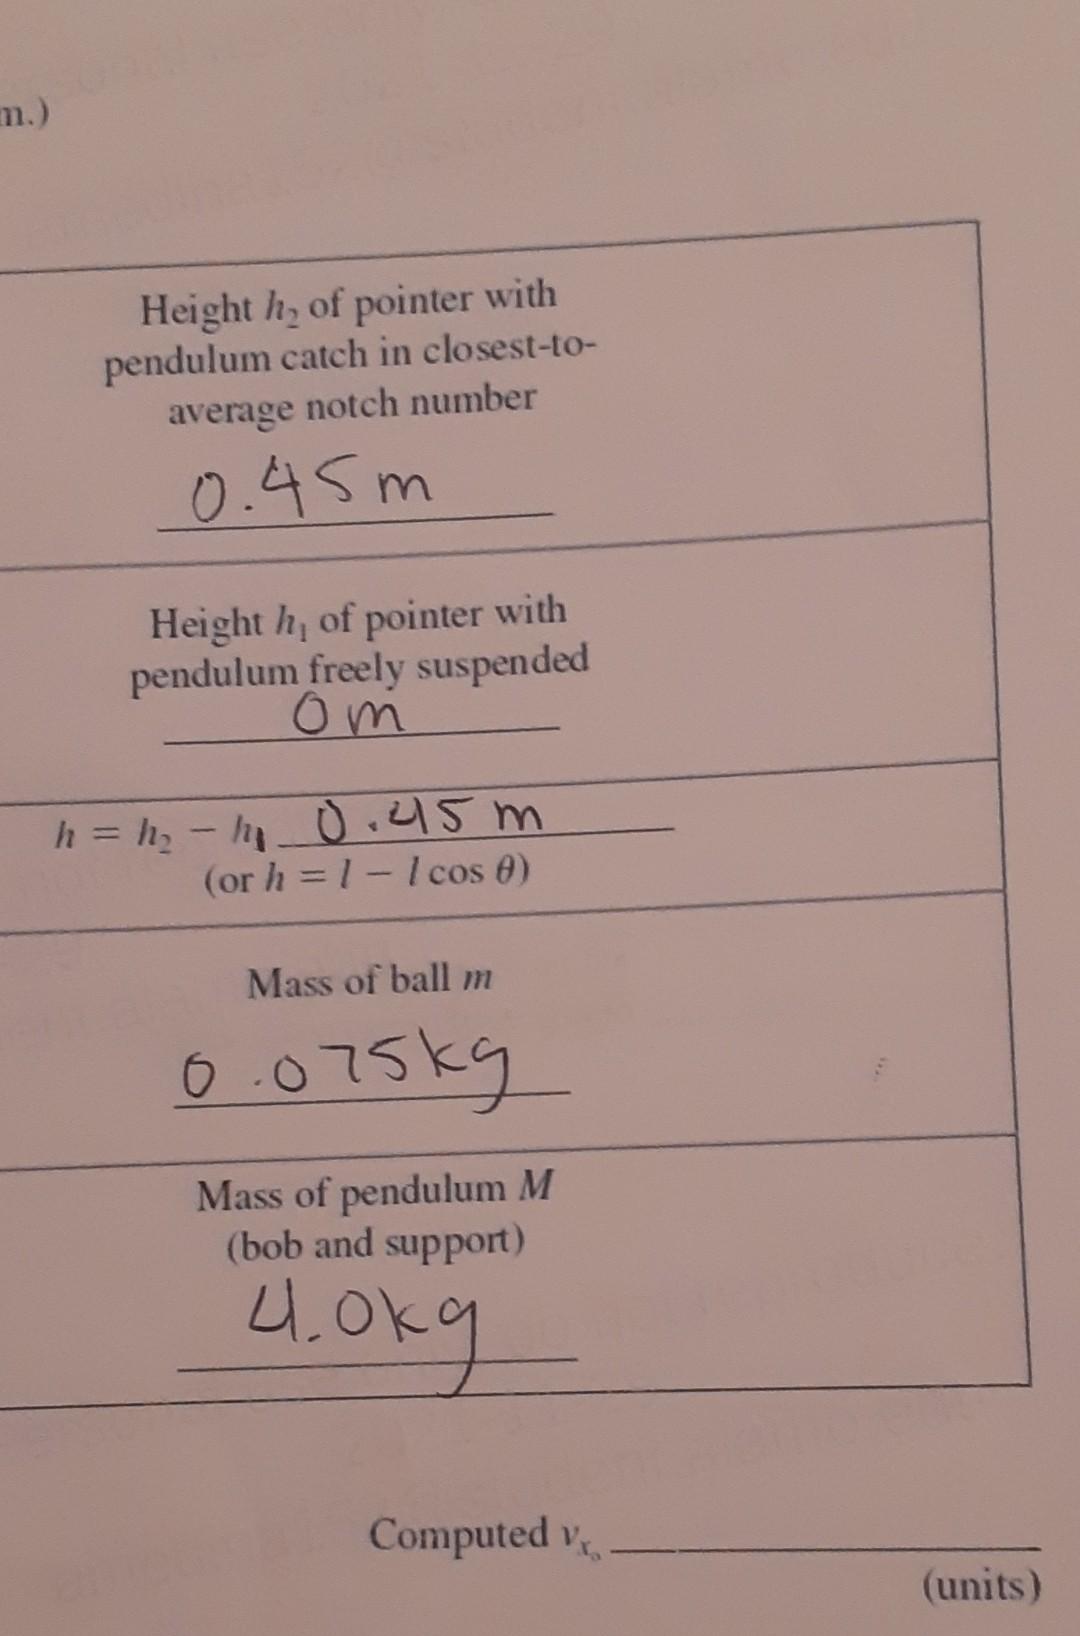 m.)
Height h₂ of pointer with
pendulum catch in closest-to-
average notch number
0.45 m
Height h₁ of pointer with
pendulum freely suspended
0 m
h = h₂ − h₁ 0.45 m
(or h = l − l cos θ)
Mass of ball m
0.075kg
Mass of pendulum M
(bob and support)
4.0kg
Computed vₓ₀
(units)